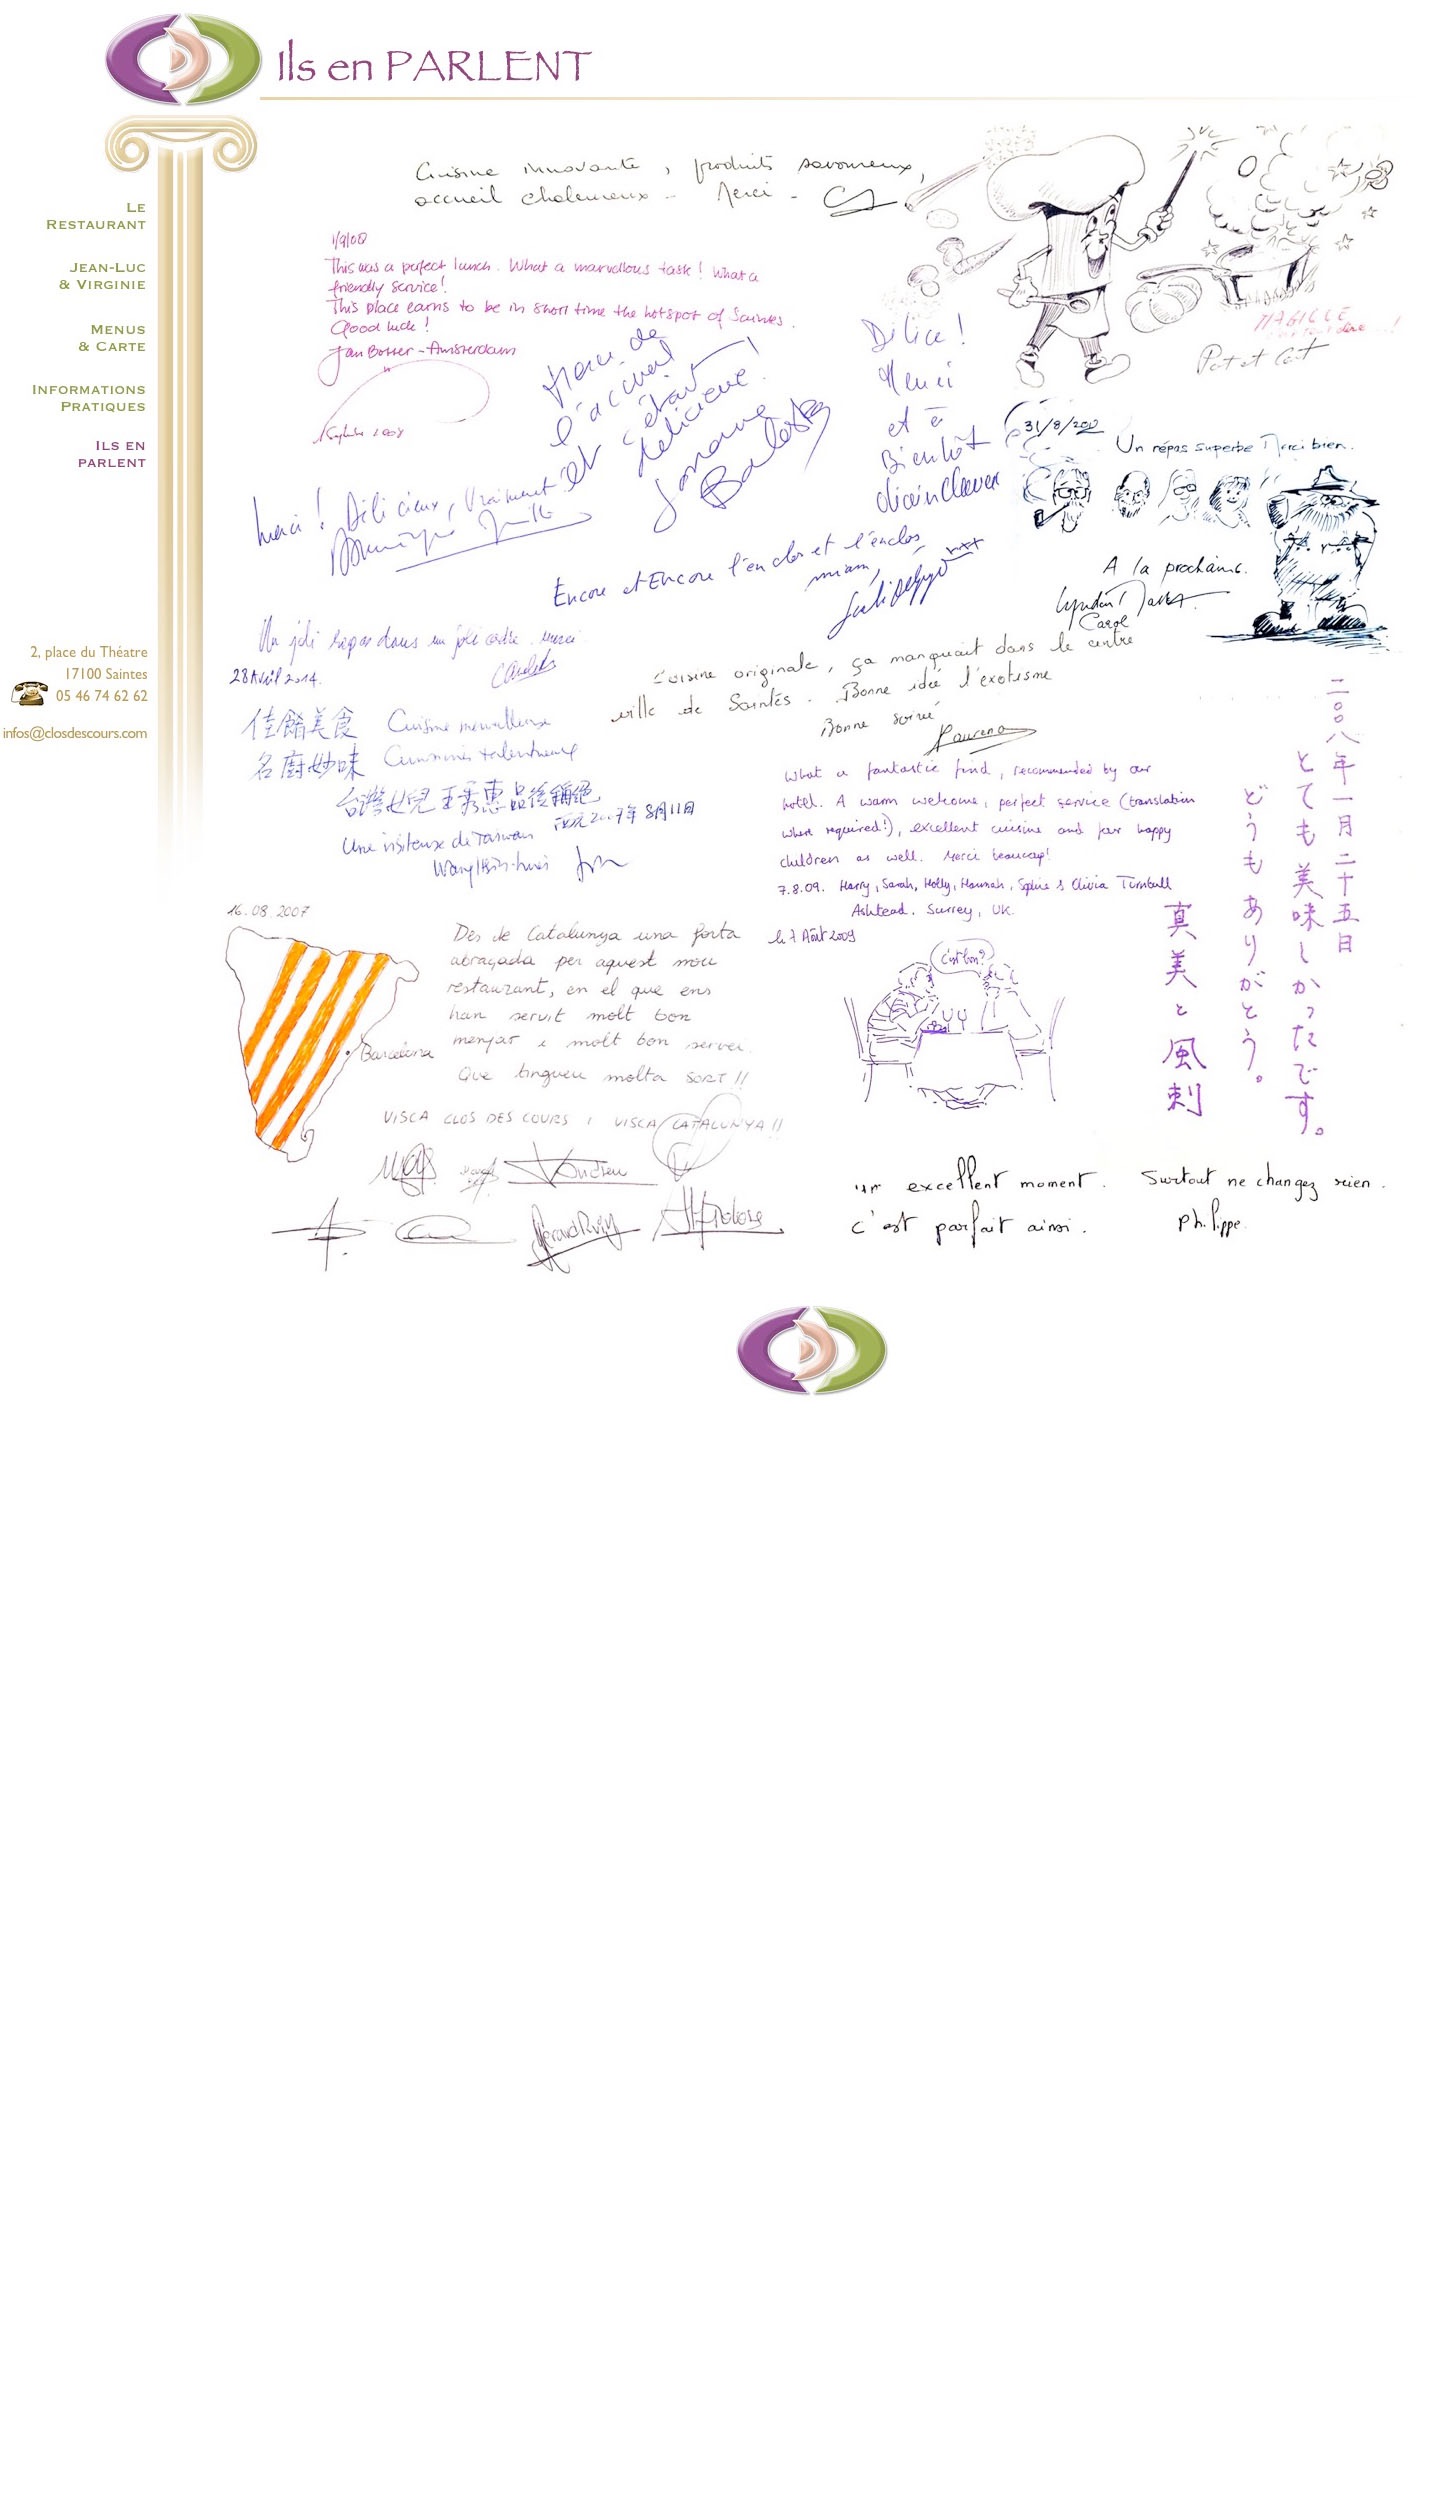 Ils en PARLENT
Le
Restaurant
Jean-Luc
& Virginie
Menus
& Carte
Informations
Pratiques
Ils en
parlent
2, place du Théatre
17100 Saintes
05 46 74 62 62
infos@closdescours.com
Cuisine innovante, produits savoureux,
accueil chaleureux - Merci -
1/9/08
This was a perfect lunch. What a marvellous task! What a
friendly service!
This place earns to be in short time the hotspot of Saintes.
Good luck!
Jan Bosser - Amsterdam
Merci de
l'accueil
et c'était
délicieux!
Délice!
Merci
et à
Bientôt
MAGILLE
Pat et Cat
31/8/200
Un répas superbe Merci bien.
A la prochaine.
Carol
Merci! Délicieux, vraiment
Encore et Encore l'enclos et l'enclos
miam,
Un joli repas dans un joli cadre. Merci
28 Avril 2014.
Cuisine originale, ça manquait dans le centre
ville de Saintes. Bonne idée l'exotisme
Bonne soirée
佳餚美食 Cuisine merveilleuse
名廚妙味
台灣女兒王秀惠品後稱絕
西元2007年8月11日
Une visiteuse de Taiwan
What a fantastic find, recommended by our
hotel. A warm welcome, perfect service (translation
where required!), excellent cuisine and four happy
children as well. Merci beaucoup!
7.8.09. Harry, Sarah, Holly, Hannah, Sophie & Olivia Turnbull
Ashtead. Surrey, UK.
le 7 Août 2009
c'est bon?
二〇〇八年一月二十五日
とても美味しかったです。
どうもありがとう。
真美と風刺
16.08.2007
Barcelona
Des de Catalunya una forta
abraçada per aquest nou
restaurant, en el que ens
han servit molt bon
menjar i molt bon servei.
Que tingueu molta SORT!!
VISCA CLOS DES COURS i VISCA CATALUNYA!!
Andreu
un excellent moment. Surtout ne changez rien.
c'est parfait ainsi. Philippe.